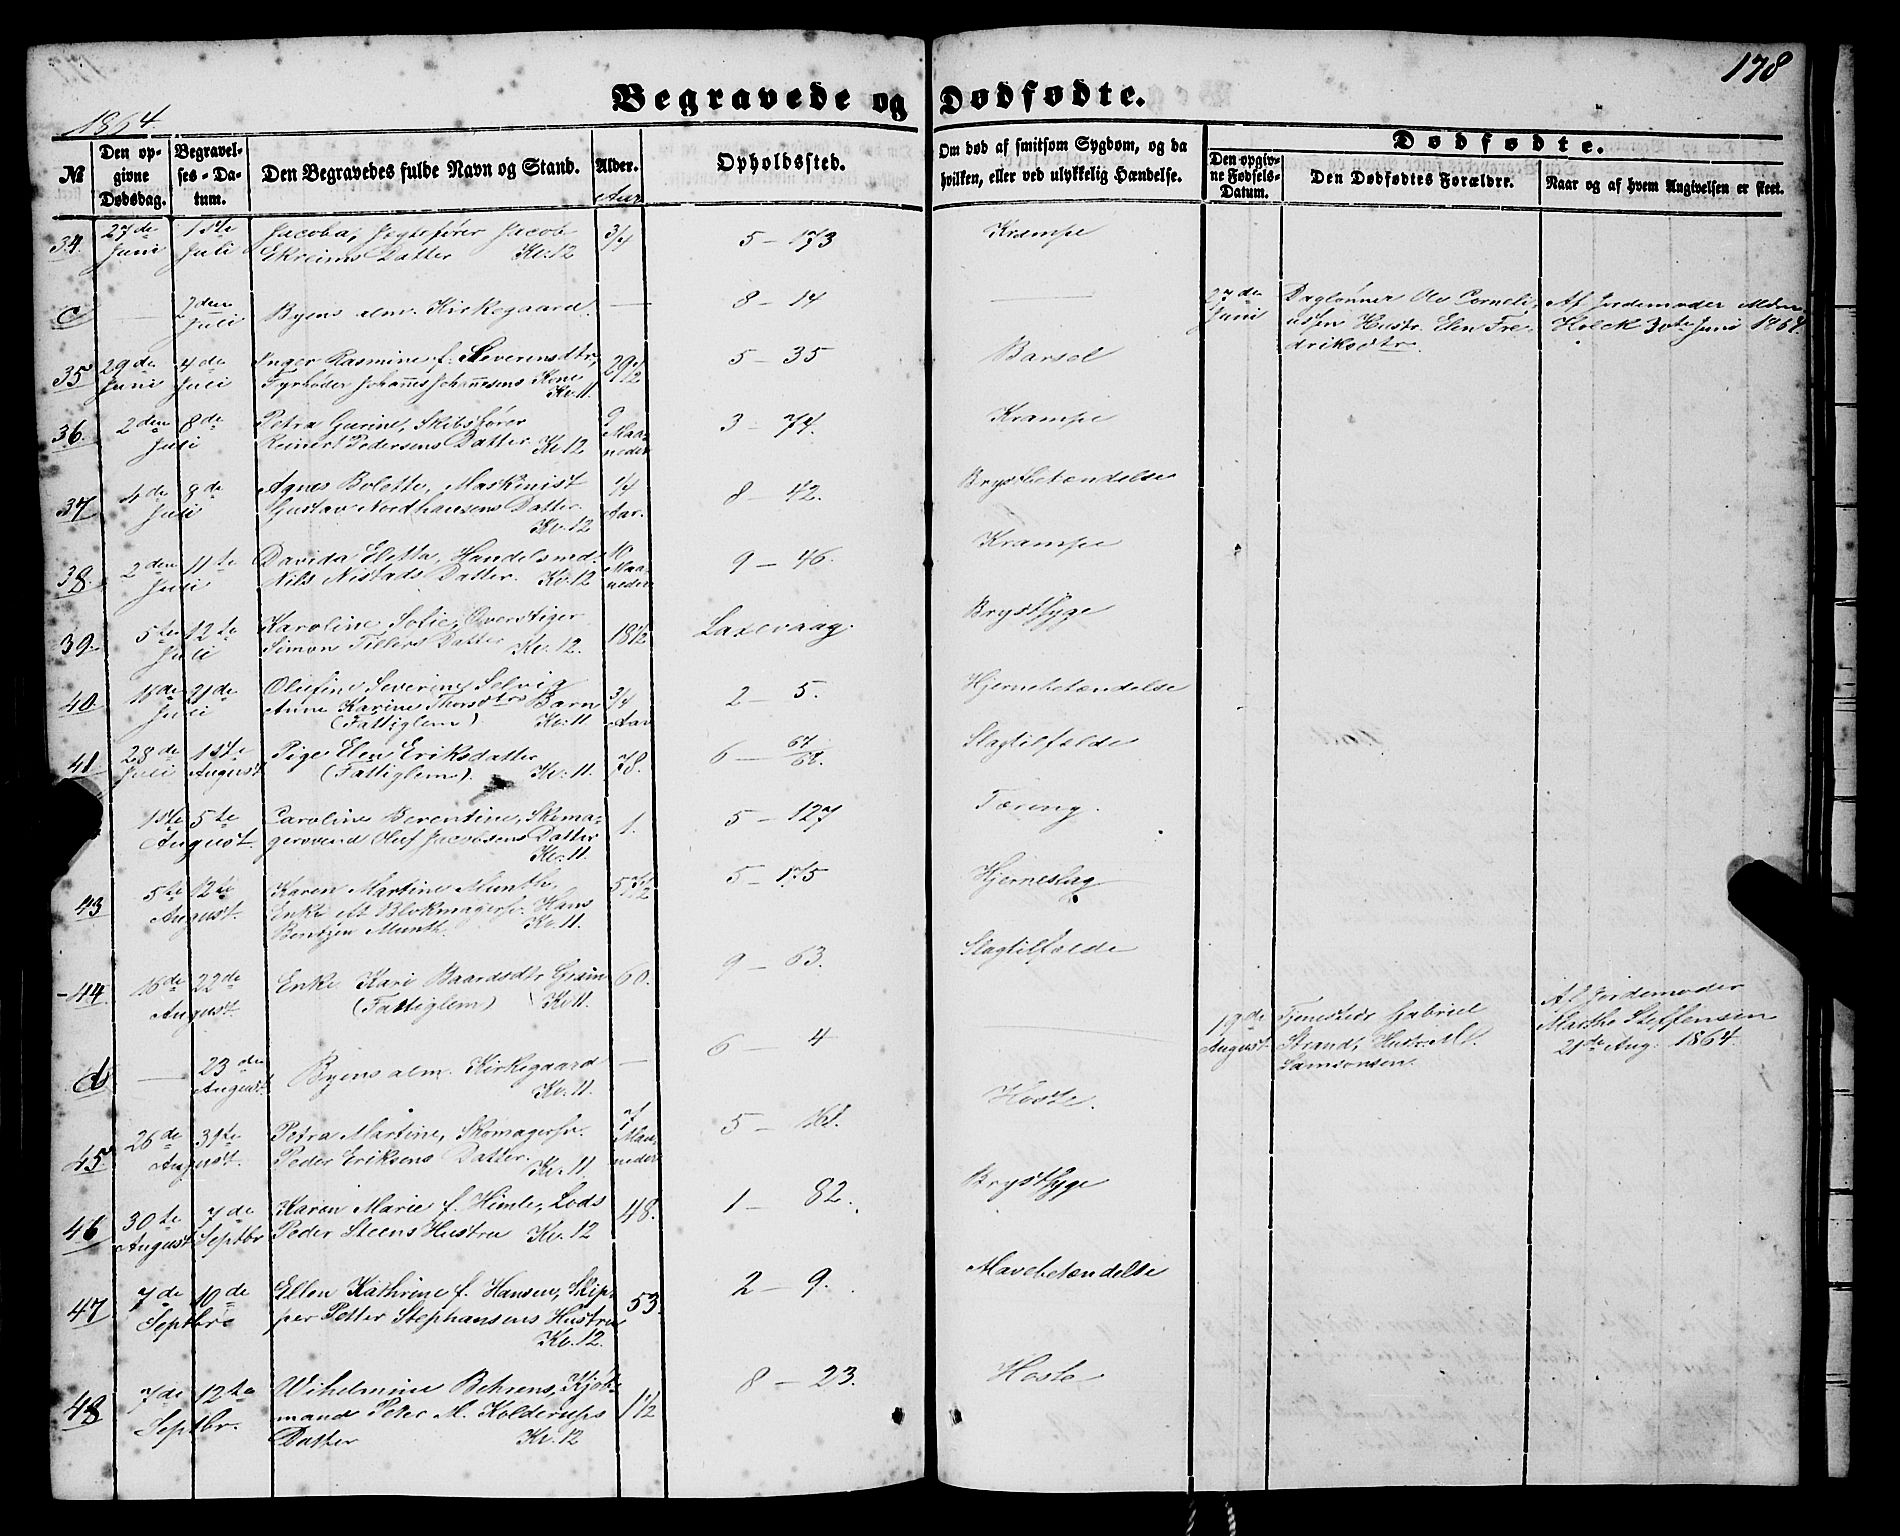 178
Begravede og Dødfødte.
1864.
№
Den opgivne Dødsdag.
Begravelses-Datum.
Den Begravedes fulde Navn og Stand.
Alder.
Aar
Opholdssted.
Om død af smitsom Sygdom, og da hvilken, eller ved ulykkelig Hændelse.
Dødfødte.
Den opgivne Fødsels-Datum.
Den Dødfødtes Forældre.
Naar og af hvem Angivelsen er skeet.
34. 27de Juni 1ste Juli Jacoba, Jegtefører Jacob
Ekreims Datter Kv: 12 3/4 5 – 173 Krampe
c — 2den Juli Byens alm. Kirkegaard. — 8 – 14 — 27de Juni Daglønner Ole Corneli-
ussen Hustr. Elen Fre-
driksdtr. Af Jordemoder
Holck 30te Juni 1864.
35 29de Juni 4de Juli Inger Rasmine f. Severensdtr,
Fyrbøder Johañes Johañesens Kone
Kv. 11 29 1/2 5 – 35 Barsel
36. 2den Juli 8de Petra Gurine, Skibsfører
Reinert Pedersens Datter Kv 12 9 Maaneder 3 – 74. Krampe
37 4de Juli 8de Agnes Bolette, Maskinist
Gustav Nordhausens Datter.
Kv. 12 1/4 Aar. 8 – 42. Brystbetændelse
38. 2den Juli 11te Davida Eletta, Handelsmd.
Nils Nistads Datter. Kv. 12 10 Maaneder 9 – 46. Krampe
39. 5te Juli 12te Karoline Sofie, Overstiger
Simon Tillers Datter Kv. 12. 18 1/2 Laxevaag. Brystsyge
40 Juli 21de Olufine Severine Selvig
Anne Karine Thorsdtrs Barn
(Fattiglem) Kv: 11 3/4 Aar 2 – 5. Hjernebetændelse
41 28de Juli 1ste August Pige Elen Eriksdatter
(Fattiglem). Kv: 11. 78. 6 – Slagtilfælde
1ste August 5te Caroline Berentine, Skoma-
gersvend Oluf Jacobsens Datter
Kv: 11. 1. 5 – 127 Tæring.
43 5te August. 12te Karen Martine Munth,
Enke eft Blokmagersv. Hans
Bentzen Munth. Kv. 11. 57 1/2 5 – 175 Hjerneslag
44 16de August. 22de Enke Kari Baardsdtr
(Fattiglem) Kv 11. 60. 9 – 63. Slagtilfælde
d — 23den August Byens alm. Kirkegaard
Kv. 11. — 6 – 4 — 19de August Gabriel
Strand, Hustr.
Samsonsen Af Jordemoder
Marthe Steffensen
21de Aug. 1864.
45. 26de August. 31te Petra Martine, Skomagersv.
Peder Eriksens Datter. Kv. 11 7 Maaneder 5 – Hoste.
46 30te August 7de Septbr Karen Marie f. Himle, Lods
Peder Steens Hustru Kv. 12 48. 1 – 82. Brystsyge
47 7de Septbr. 10de Ellen Kathrine f. Hansen, Skip-
per Petter Stephansens Hustru
Kv. 12. 53. 2 – 9. Mavebetændelse
48 7de Septbr. 12te Wilhelmine Behrens, Kjøb-
mand Peter M. Kolderups
Datter Kv. 12 1 1/2 8 – 23. Hoste